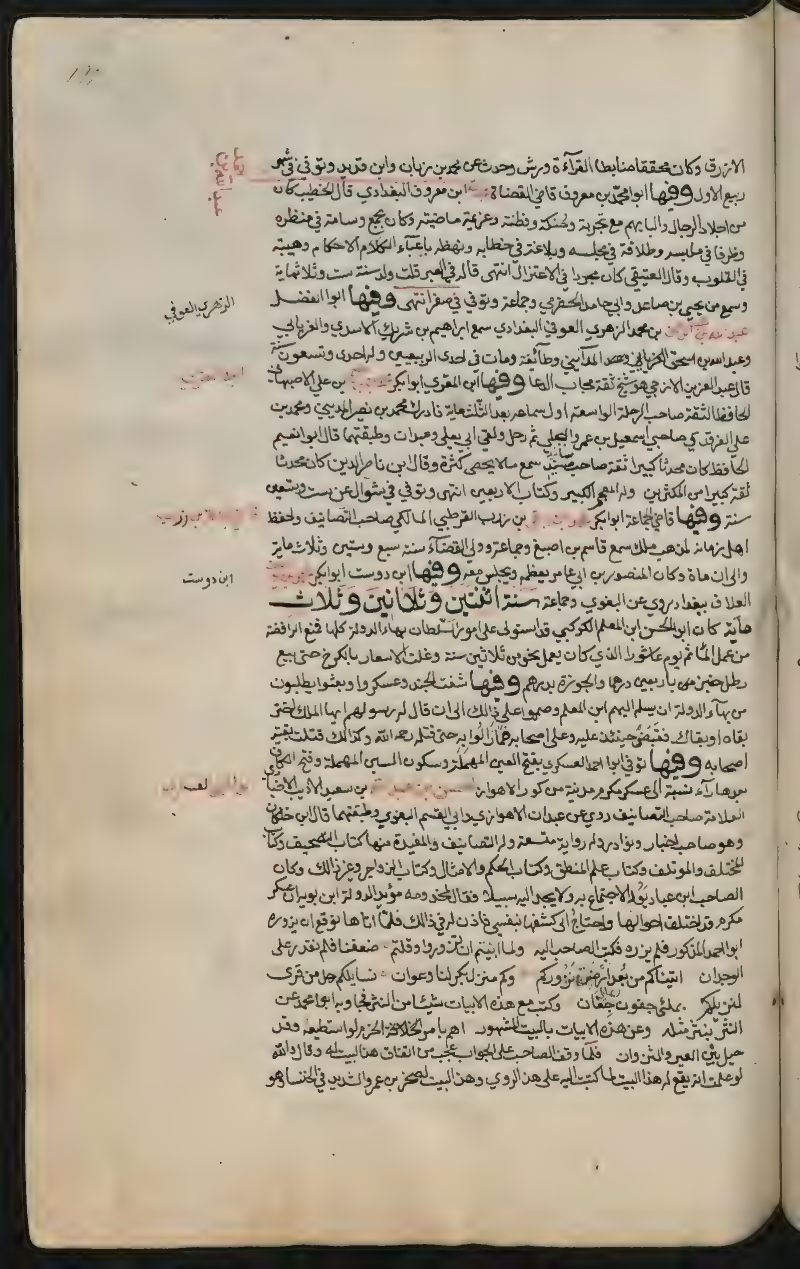 الازرق وكان محققا ضابطا لقرآءة ورش وحدث عن محمد بن زبان وابن قديد وتوفي في شهر
ربيع الاول وفيها ابو محمد بن معروف قاضي القضاة ابن معروف البغدادي قال الخطيب كان
من اجلاد الرجال والبايهم مع تجربة وحنكة وفطنة وعزيمة ماضية وكان يجمع وسامة في منظره
وظرفا في ملبسه وطلاقة في مجلسه وبلاغة في خطابه ونهضة باعباء الاحكام وهيبة
في القلوب وقال العتيقي كان مجودا في الاعتزال انتهى قاله في العبر قلت ولد سنة ست وثلاثماية
وسمع من يحيى بن صاعد وابي حامد الحضرمي وجماعة وتوفي في صفر انتهى وفيها ابوا الفضل
بن محمد الزهري العوفي البغدادي سمع ابراهيم بن شريك الاسدي والفريابي
وعبد الله بن اسحق المدائني وطائفة ومات في احدى الربيعين وله احدى وتسعون سنة
قال عبد العزيز الازجي هو شيخ ثقة مجاب الدعا وفيها ابن المقري ابو بكر بن علي الاصبهاني
الحافظ الثقة صاحب الرحلة الواسعة اول سماعه بعد الثلثماية فادرك محمد بن نصير المديني ومحمد بن
علي الفرقدي صاحبي اسمعيل بن عمرو البجلي ثم رحل ولقي ابي يعلى وعبدان وطبقتهما قال ابو نعيم
الحافظ كان محدثا كبيرا ثقة صاحب مسانيد سمع ما لا يحصى كثرة وقال ابن ناصر الدين كان محدثا
ثقة كبيرا من المكثرين وله المعجم الكبير وكتاب الاربعين انتهى وتوفي في شوال عن ست وتسعين
سنة وفيها قاضي الجماعة ابو بكر بن زرب القرطبي المالكي صاحب التصانيف واحفظ
اهل زمانه لمذهب ملك سمع قاسم بن اصبغ وجماعة وولي القضآء سنة سبع وستين وثلاث ماية
والى ان ماة وكان المنصور بن ابي عامر يعظمه ويجلس معه وفيها ابن دوست ابو بكر
العلاف ببغداد روي عن البغوي وجماعة سنة اثنتين وثمانين وثلاث
ماية كان ابو الحسن ابن المعلم الكوكبي قد استولى على امور السلطان بهاء الدولة كلها فمنع الرافضة
من عمل المأتم يوم عاشورا الذي كان يعمل نحو من ثلاثين سنة وغلت الاسعار بالكرخ حتى بيع
رطل خبز من باربعين درهما والجوزة بدرهم وفيها شغب الجند وعسكروا وبعثوا يطلبون
من بهآء الدولة ان يسلم اليهم ابن المعلم وصمموا على ذالك الى ان قال له رسولهم ايها الملك اختر
بقاه او بقاك فقبض حينئذ عليه وعلى اصحابه فما زالوا به حتى قتله رحمه الله وكذالك قتلت بقية
اصحابه وفيها توفي ابو احمد العسكري بفتح العين المهملة وسكون السين المهملة وفتح الكاف
بعدها رآء نسبة الى عسكر مكرم مدينة من كور الاهواز بن سعيد الاديب الاخباري
العلامة صاحب التصانيف روي عن عبدان الاهوازي وابي القسم البغوي وطبقتهما قال ابن خلكان
وهو صاحب اخبار ونوادر وله رواية متسعة وله التصانيف والمفيدة منها كتاب التصحيف وكتاب
المختلف والموتلف وكتاب علم المنطق وكتاب الحكم والامثال وكتاب الزواجر وغير ذالك وكان
الصاحب ابن عباد يود الاجتماع به ولا يجد اليه سبيلا فقال لمخدومه مؤيد الدولة ابن بويه ان عسكر
مكرم قد اختلف احوالها واحتاج الى كشفها بنفسي فاذن له في ذالك فلما اتاها توقع ان يزوره
ابو احمد المذكور فلم يزره فكتب الصاحب اليه ولما ابيتم ان تزوروا وقلتم ضعفنا فلم نقدر على
الوجدان اتيناكم من بعد ارض نزوركم وكم منزل بكر لنا وعوان نسايلكم هل من قرى
لنزيلكم بملئ جفون لا بملئ جفان وكتب مع هذه الابيات شيئا من النثر فجاوبه ابو احمد عن
النثر بنثر مثله وعن هذه الابيات بالبيت المشهور اهم بامر الحزم لو استطيعه وقد
حيل بين العير والنزوان فلما وقف الصاحب على الجواب عجب من اتفاق هذا البيت له وقال والله
لو علمت انه يقع له هذا البيت لما كتبت اليه على هذا الروي وهذا البيت لصخر بن عمرو الشريد اخي الخنساء وهو
الزهري العوفي
ابن دوست